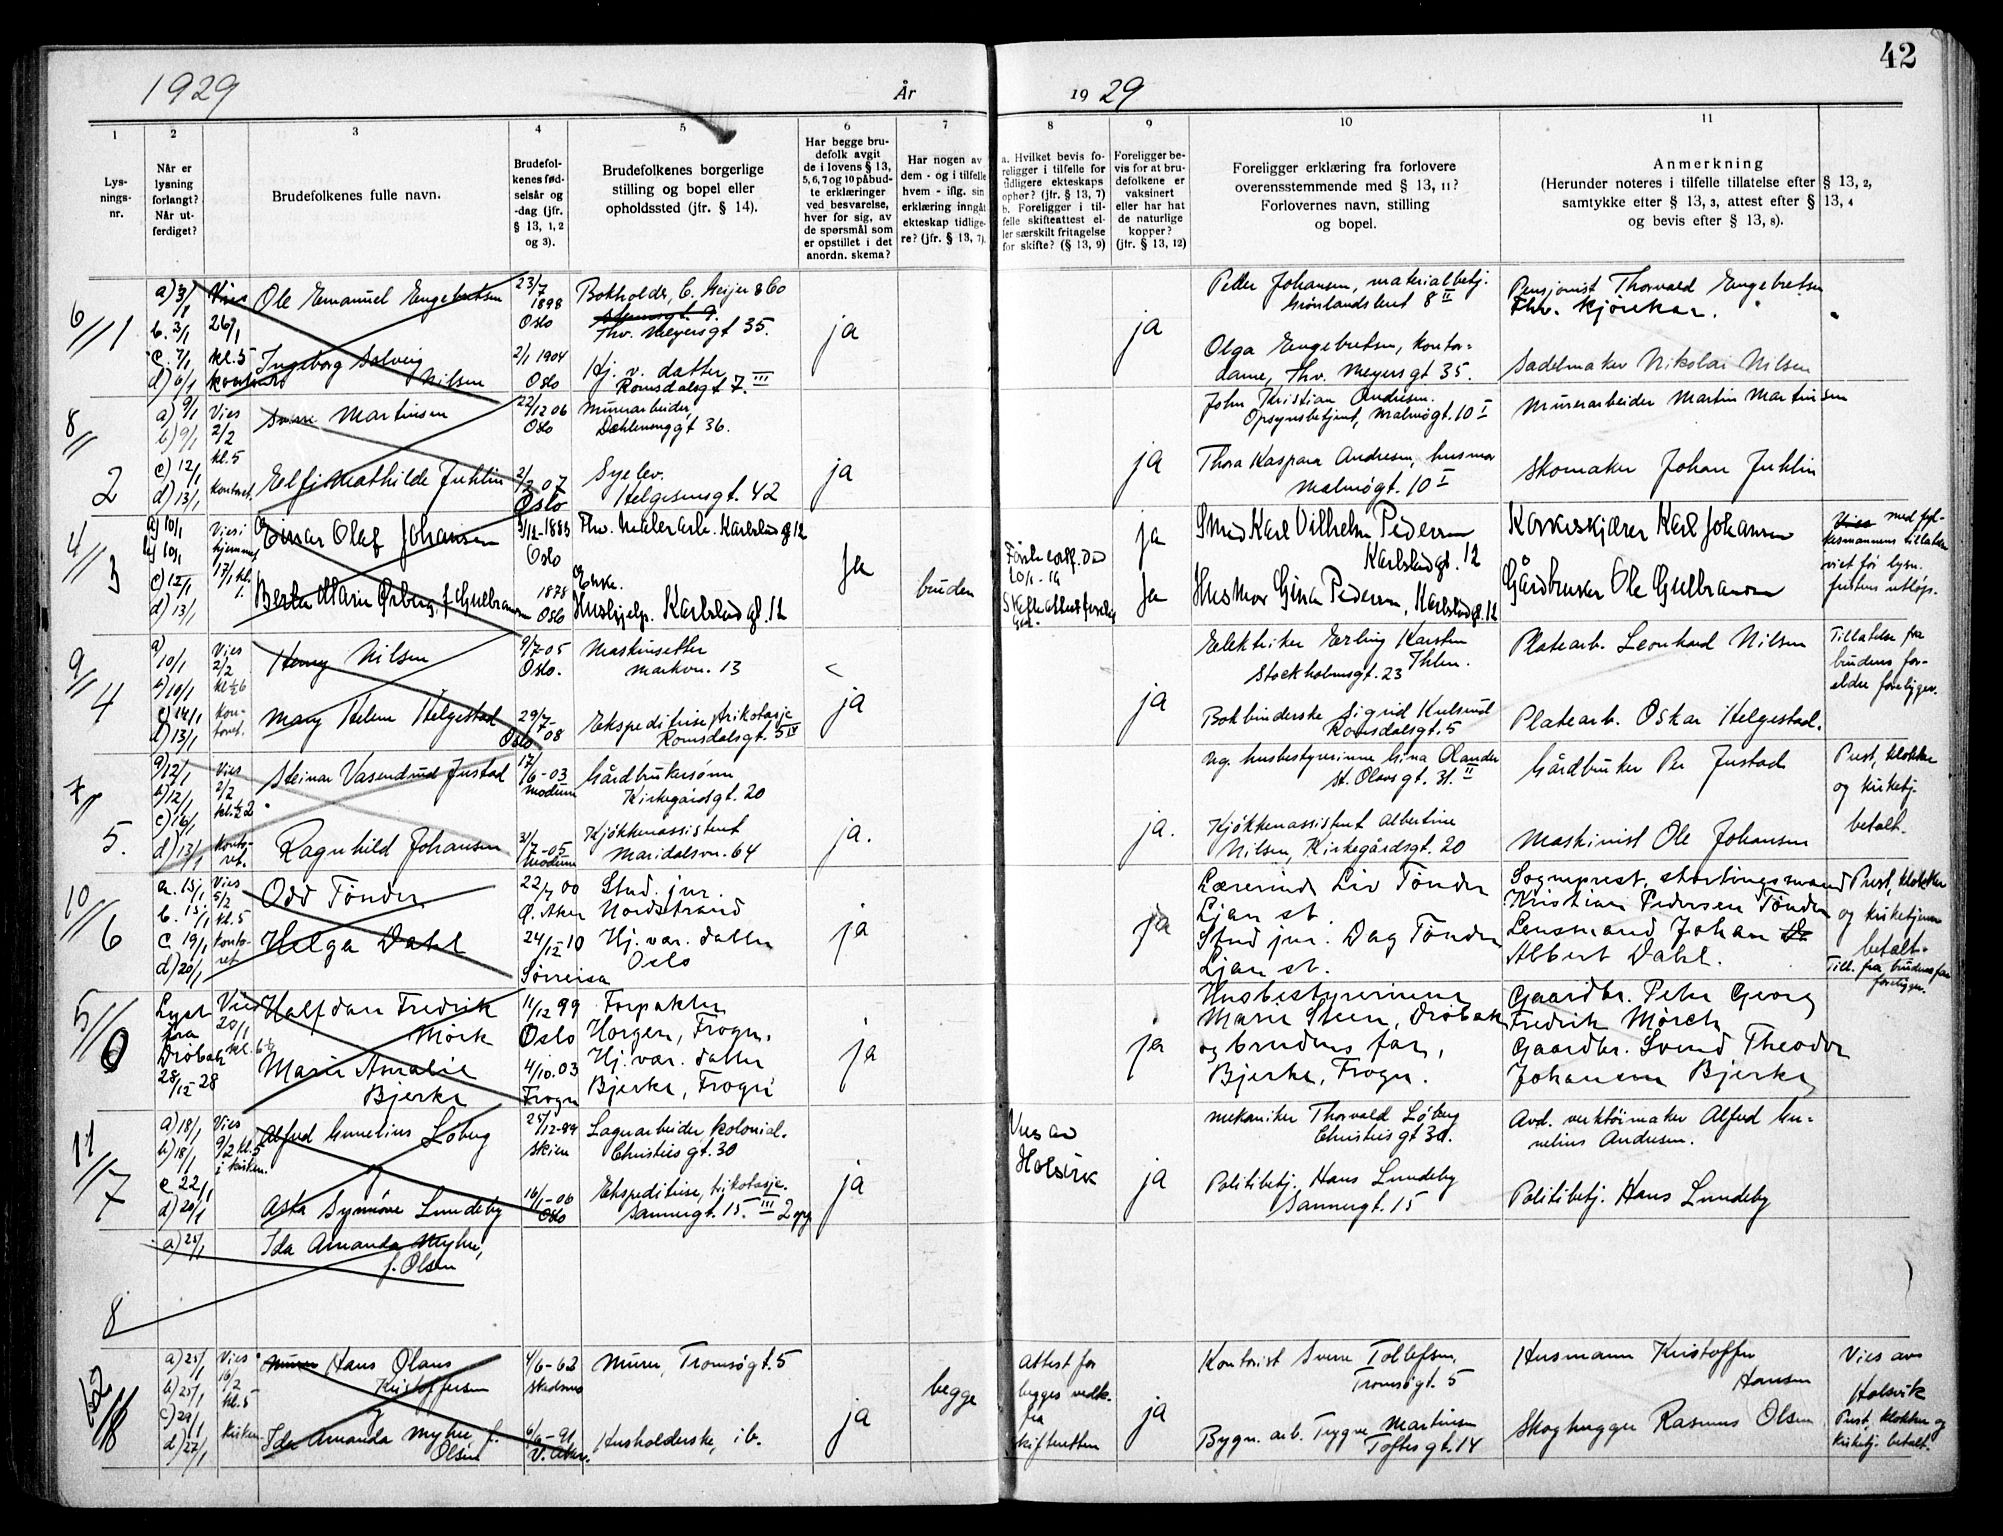 42
1929
År
19 29
1
2
3
4
5
6
7
8
9
10
11
Lys-
nings-
nr.
Når er
lysning
forlangt?
Når ut-
ferdiget?
Brudefolkenes fulle navn.
Brudefol-
kenes fød-
selsår og
-dag (jfr.
§ 13, 1, 2
og 3).
Brudefolkenes borgerlige
stilling og bopel eller
opholdssted (jfr. § 14).
Har begge bru-
defolk avgit
de i lovens § 13,
5, 6, 7 og 10 påbud-
te erklæringer
ved besvarelse,
hver for sig, av
de spørsmål som
er opstillet i det
anordn. skema?
Har nogen av
dem - og i tilfelle
hvem - iflg. sin
erklæring inngått
ekteskap tidlige-
re? (jfr. § 13, 7).
a. Hvilket bevis fo-
religger i tilfelle for
tidligere ekteskaps
ophør? (jfr. § 13, 7)
b. Foreligger i til-
felle skifteattest el-
ler særskilt fritagelse
for skifte? (§ 13, 9)
Foreligger be-
vis for at bru-
defolkene er
vaksinert
eller har hat
de naturlige
kopper?
(jfr. § 13, 12)
Foreligger erklæring fra forlovere
overensstemmende med § 13, 11?
Forlovernes navn, stilling
og bopel.
Anmerkning
(Herunder noteres i tilfelle tillatelse efter § 13, 2,
samtykke efter § 13, 3, attest efter § 13, 4
og bevis efter § 13, 8).
6//1
a) 3/1
b. 3/1
c. 7/1
d) 6/1
Vies
26/1
kl. 5
kontoret
Ole Emanuel Engebretsen
23/7
1898
Oslo
Bokholder,
Thv. Meyersgt 35.
Ingeborg Solveig
Nilsen
2/1 1904
Oslo
Hj. v. datter
Romsdalsgt 7 III
ja
ja
Petter Johansen, materialbetj.
Grønlandsleiret 8 II
Olga Engebretsen, kontor-
dame, Thv. Meyersgt 35.
Pensjonist Thorvald Engebretsen
Sadelmaker Nikolai Nilsen
8//2
a) 9/1
b) 9/1
c) 12/1
d) 13/1
Vies
2/2
kl. 5
kontoret.
Sverre Martinsen
22/12 06
Oslo
Murarbeider,
Dælenenggt 36.
Mathilde Juhlin
07
Oslo
Syelev.
Helgesensgt. 42
ja
ja
John Kristian Andresen.
Opsynsbetjent, Malmøgt. 10 I
Thora Kaspara Andresen, husmor
Malmøgt. 10 I
Murerarbeider Martin Martinsen
Skomaker Johan Juhlin
4//3
a) 10/1
b) 10/1
c) 12/1
d) 13/1
Vies i
hjemmet
17/1 kl.
1.
Einar Olaf Johansen
Oslo
Fhv. Malerarb. Karlstadgt. 12
Berta Marie Ørberg, f. Gulbransen
1878
Oslo
Enke.
Hushjelp. Karlstadgt. 12
Ja
bruden
Første ektf. død
Skifteattest forelig-
ger.
ja
Ja
Smed Karl Vilhelm Pedersen
Karlstadgt. 12
Husmor Gina Pedersen, Karlstadgt. 12
Korkeskjærer Karl Johansen
Gårdbruker Ole Gulbransen
Vies med fyl-
kesmannens tillatelse
viet før lysn.
fristens utløp.
9//4
a)
10/1
b) 10/1
c) 14/1
d) 13/1
Vies
2/2
kl ½6
kon-
toret.
Henry Nilsen
9/7-05
Oslo.
Maskinsetter
Markvn. 13
Mary Helene Helgestad
29/7-
08
Oslo
Ekspeditrise, trikotasje
Romsdalsgt. 5 IV
ja
ja
Elektriker Erling Karsten
Stockholmsgt. 23 Thlen.
Bokbinderske Sigrid
Romsdalsgt. 5
Platearb. Leonhard Nilsen
Platearb. Oskar Helgestad.
Tillatelse fra
brudens for-
eldre foreligger.
7//5.
a) 12/1
b) 12/1
c) 16/1
d) 13/1
Vies
2/2
kl. ½2
konto-
ret.
Steinar Vasendrud Justad
17/
6-03
Modum
Gårdbrukersønn
Kirkegårdsgt. 20
Ragnhild Johansen
31/
7-05
Modum
Kjøkkenassistent
Maridalsvn. 64
ja.
ja.
Ug. husbestyrerinne Gina Olander
St. Olavsgt. 31. II
Kjøkkenassistent Albertine
Nilsen, Kirkegårdsgt. 20
Gårdbruker Per Justad
Maskinist Ole Johansen
Prest, klokker
og kirketj.
betalt.
10//6
a. 15/1
b. 15/1
c 19/1
d) 20/1
Vies
5/2
kl. 5
konto-
ret
Odd Tönder
22/7 00
Ø. Aker
Stud. jur.
Nordstrand
Helga Dahl
24/12 10
Sørreisa
Hj. var. datter
Oslo
ja
ja
Lærerinde Liv Tönder
Ljan st.
Stud jur. Dag Tönder
Ljan st.
Sogneprest, stortingsmand
Kristian Pedersen Tönder
Lensmand Johan
Albert Dahl.
Prest, klokker
og kirketjener
betalt.
Till. fra brudens far
foreligger.
5//0
Lyst
fra
Drøbak
28/12-28
Vies
20/1
kl. 6½
Halfdan Fredrik
Mörk
11/12 99
Oslo
Forpakter
Horgen, Frogn.
Marie Amalie
Bjerke
4/10. 03
Frogn
Hj. var. datter
Bjerke, Frogn
ja
ja
Husbestyrerinne
Marie Steen, Drøbak
og brudens far,
Bjerke, Frogn.
Gaardbr. Peter Georg
Fredrik Mörch
Gaardbr. Svend Theodor
Johansen Bjerke
11//7
a) 18/1
b) 18/1
c 22/1
d) 20/1
Vies
9/2 kl. 5
i kirken.
Alfred Løberg
25/12-99
Skien
Lagerarbeider kolonial.
Christies gt. 30
Aska Synnöve Lundeby
16/1-06
Oslo
Ekspeditrise, trikotasje.
Sannergt. 15. III 2 opg
ja
Vies av
Holsvik
ja
Mekaniker Thorvald Løberg
Christies gt 30.
Politibetj. Hans Lundeby
Sannergt. 15
Avd. verktøimaker Alfred
Andresen.
Politibetj. Hans Lundeby
8
a) 25/1
Ida Amanda Myhre,
f. Olsen
12//8
a) 25/1
b) 25/1
c) 29/1
d) 27/1
Vies
16/2
kl. 5
kirken
Murer Hans Olaus
Kristoffersen
4/6-62
Murer, Tromsøgt. 5
Ida Amanda Myhre f.
Olsen
6/6-91
V. Aker.
Husholderske, ib.
ja
begge
Attest for
begges vedk.
fra
skifteretten
ja
Kontorist Sverre Tollefsen,
Tromsøgt. 5
Bygn. arb. Trygve Martinsen
Toftes gt. 14
Husmann Kristoffer
Hansen
Skoghugger Rasmus Olsen
Vies avs
Holsvik
Prest, klokker og
kirketj. betalt.